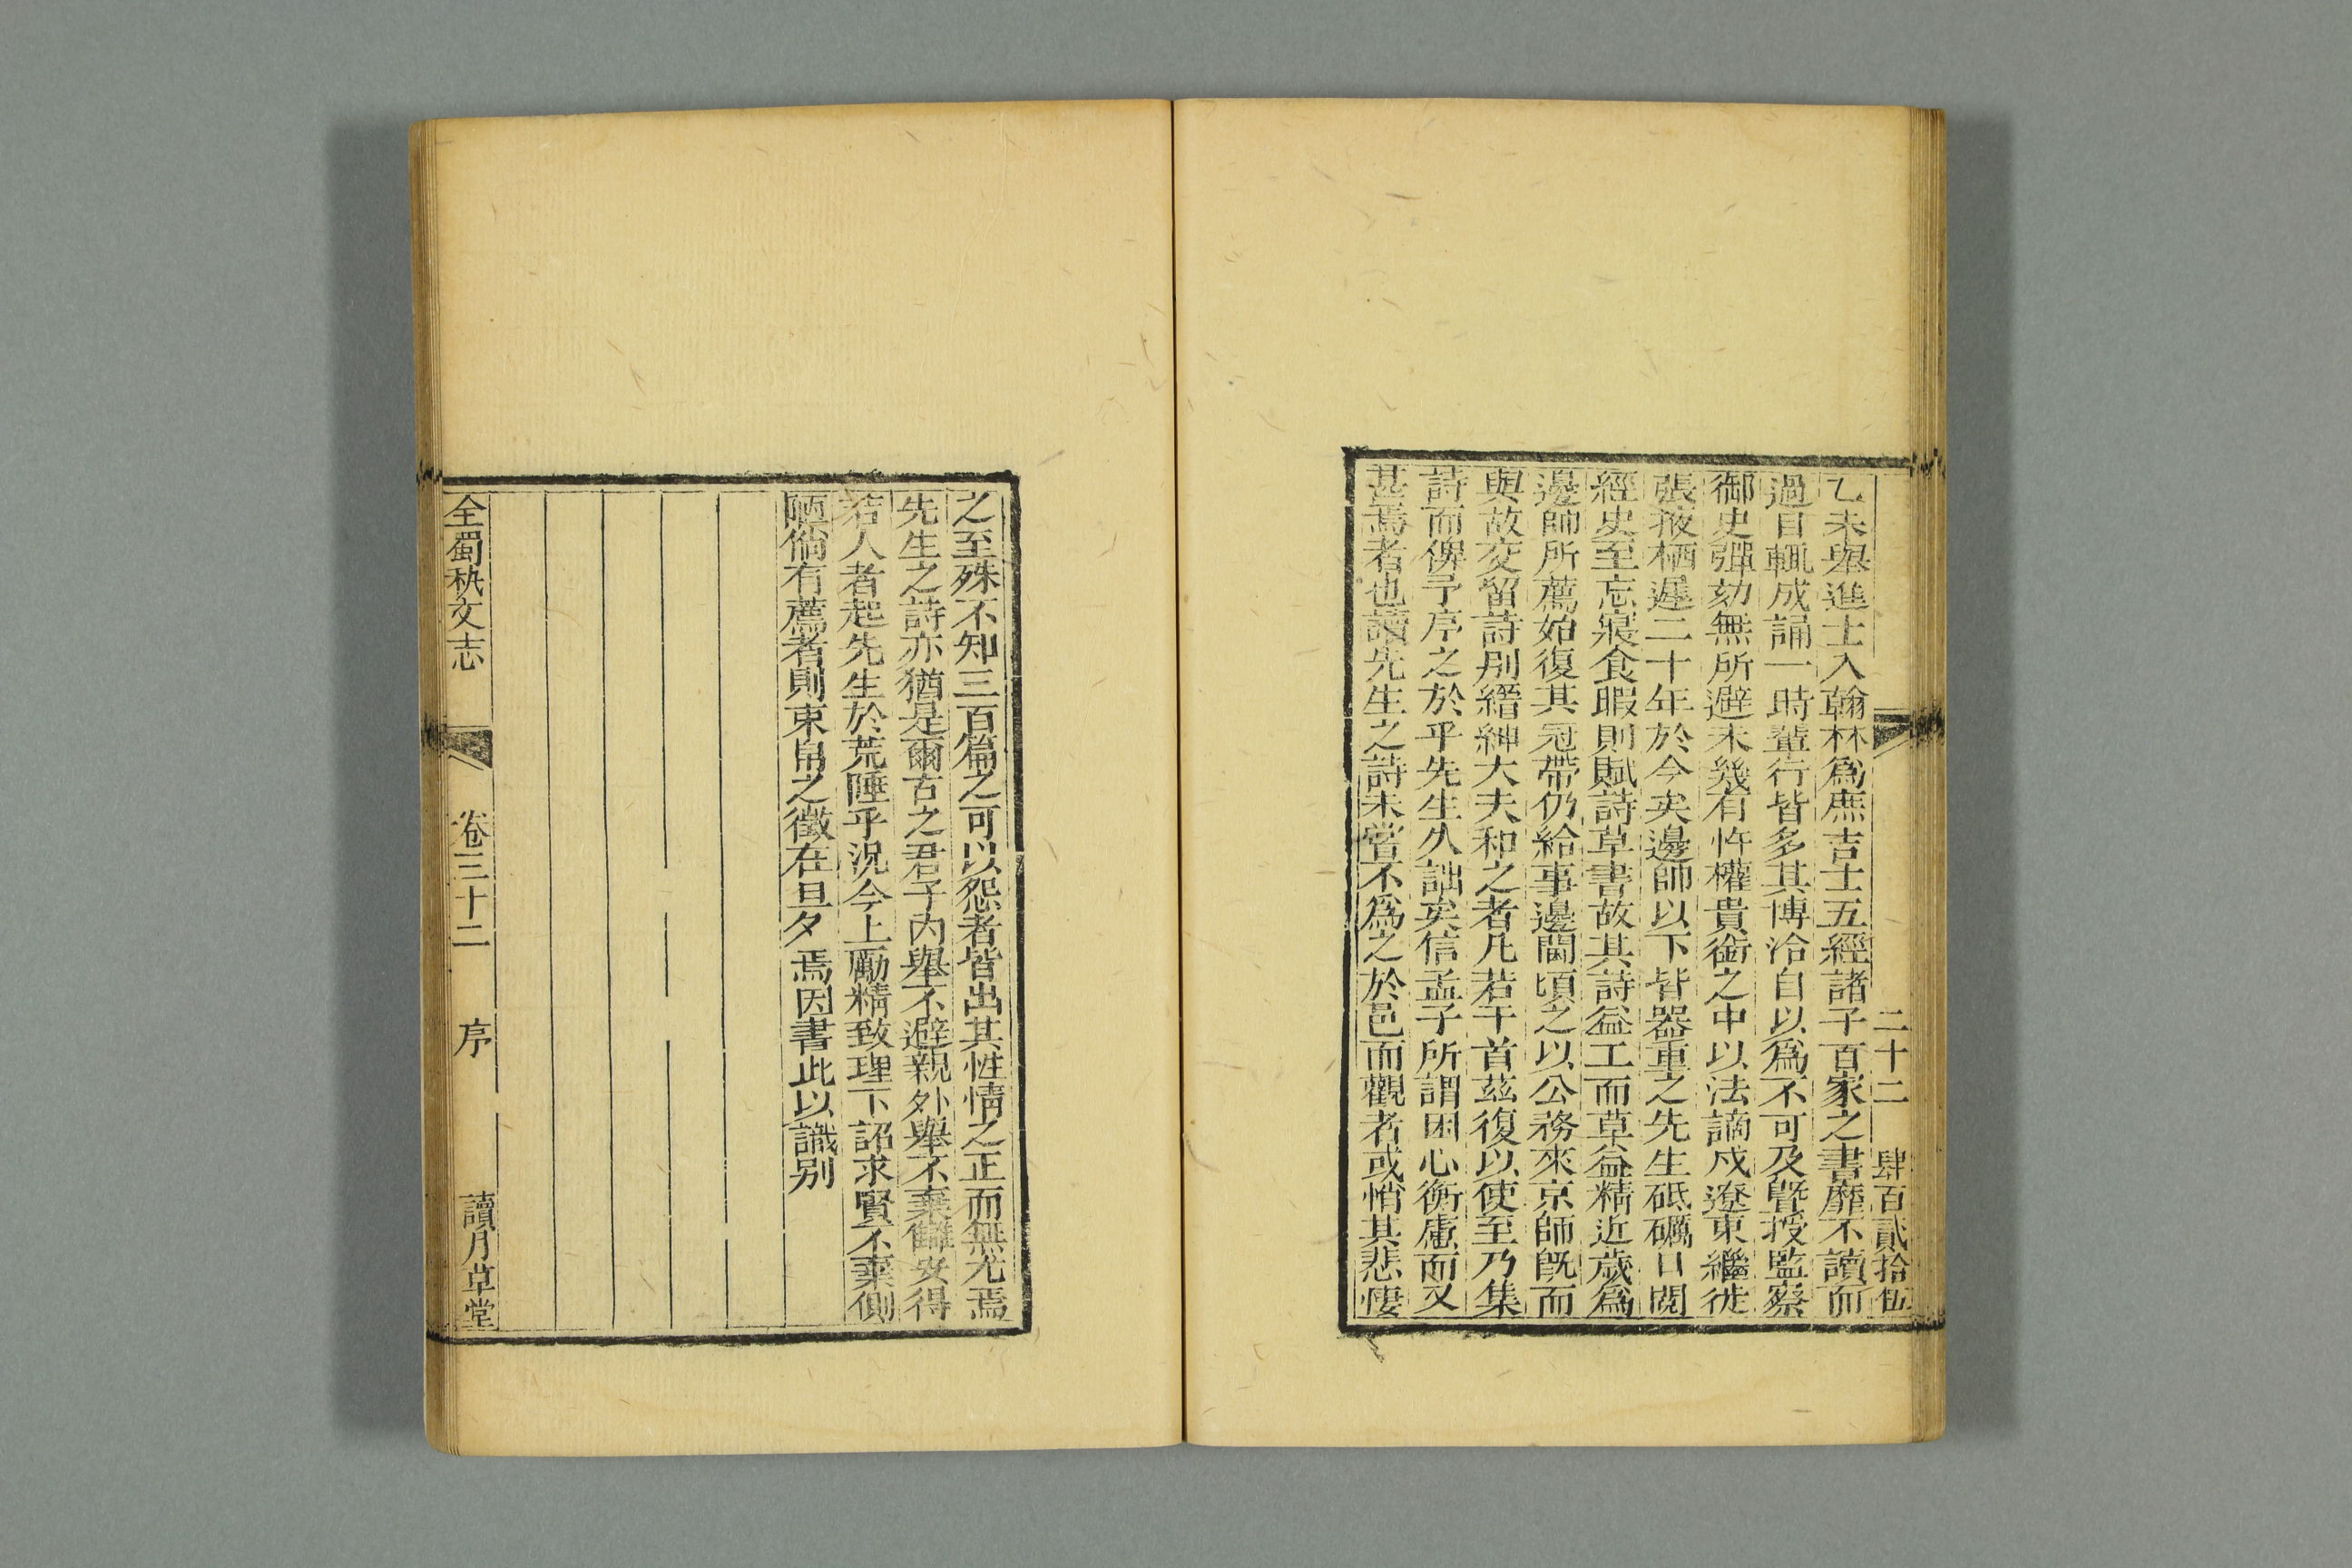 二十二　肆百貳拾伍
乙未舉進士入翰林爲庶吉士五經諸子百家之書靡不讀而
過目輒成誦一時輩行皆多其博洽自以爲不可及曁授監察
御史彈劾無所避未幾有忤權貴銜之中以法謫戍遼東繼徙
張掖栖遲二十年於今矣邊帥以下皆器重之先生砥礪日閱
經史至忘寢食暇則賦詩草書故其詩益工而草益精近歲爲
邊帥所薦始復其冠帶仍給事邊閫頃之以公務來京師旣而
與故交留詩别縉紳大夫和之者凡若干首茲復以使至乃集
詩而俾予序之於乎先生久詘矣信孟子所謂困心衡慮而又
甚焉者也讀先生之詩未嘗不爲之於邑而觀者或悄其悲悽
之至殊不知三百篇之可以怨者皆出其性情之正而無尤焉
先生之詩亦猶是爾古之君子内舉不避親外舉不棄讎安得
若人者起先生於荒陲乎況今上勵精致理下詔求賢不棄側
陋倘有薦者則束帛之徵在旦夕焉因書此以識别
全蜀秇文志　卷三十二　序　讀月草堂